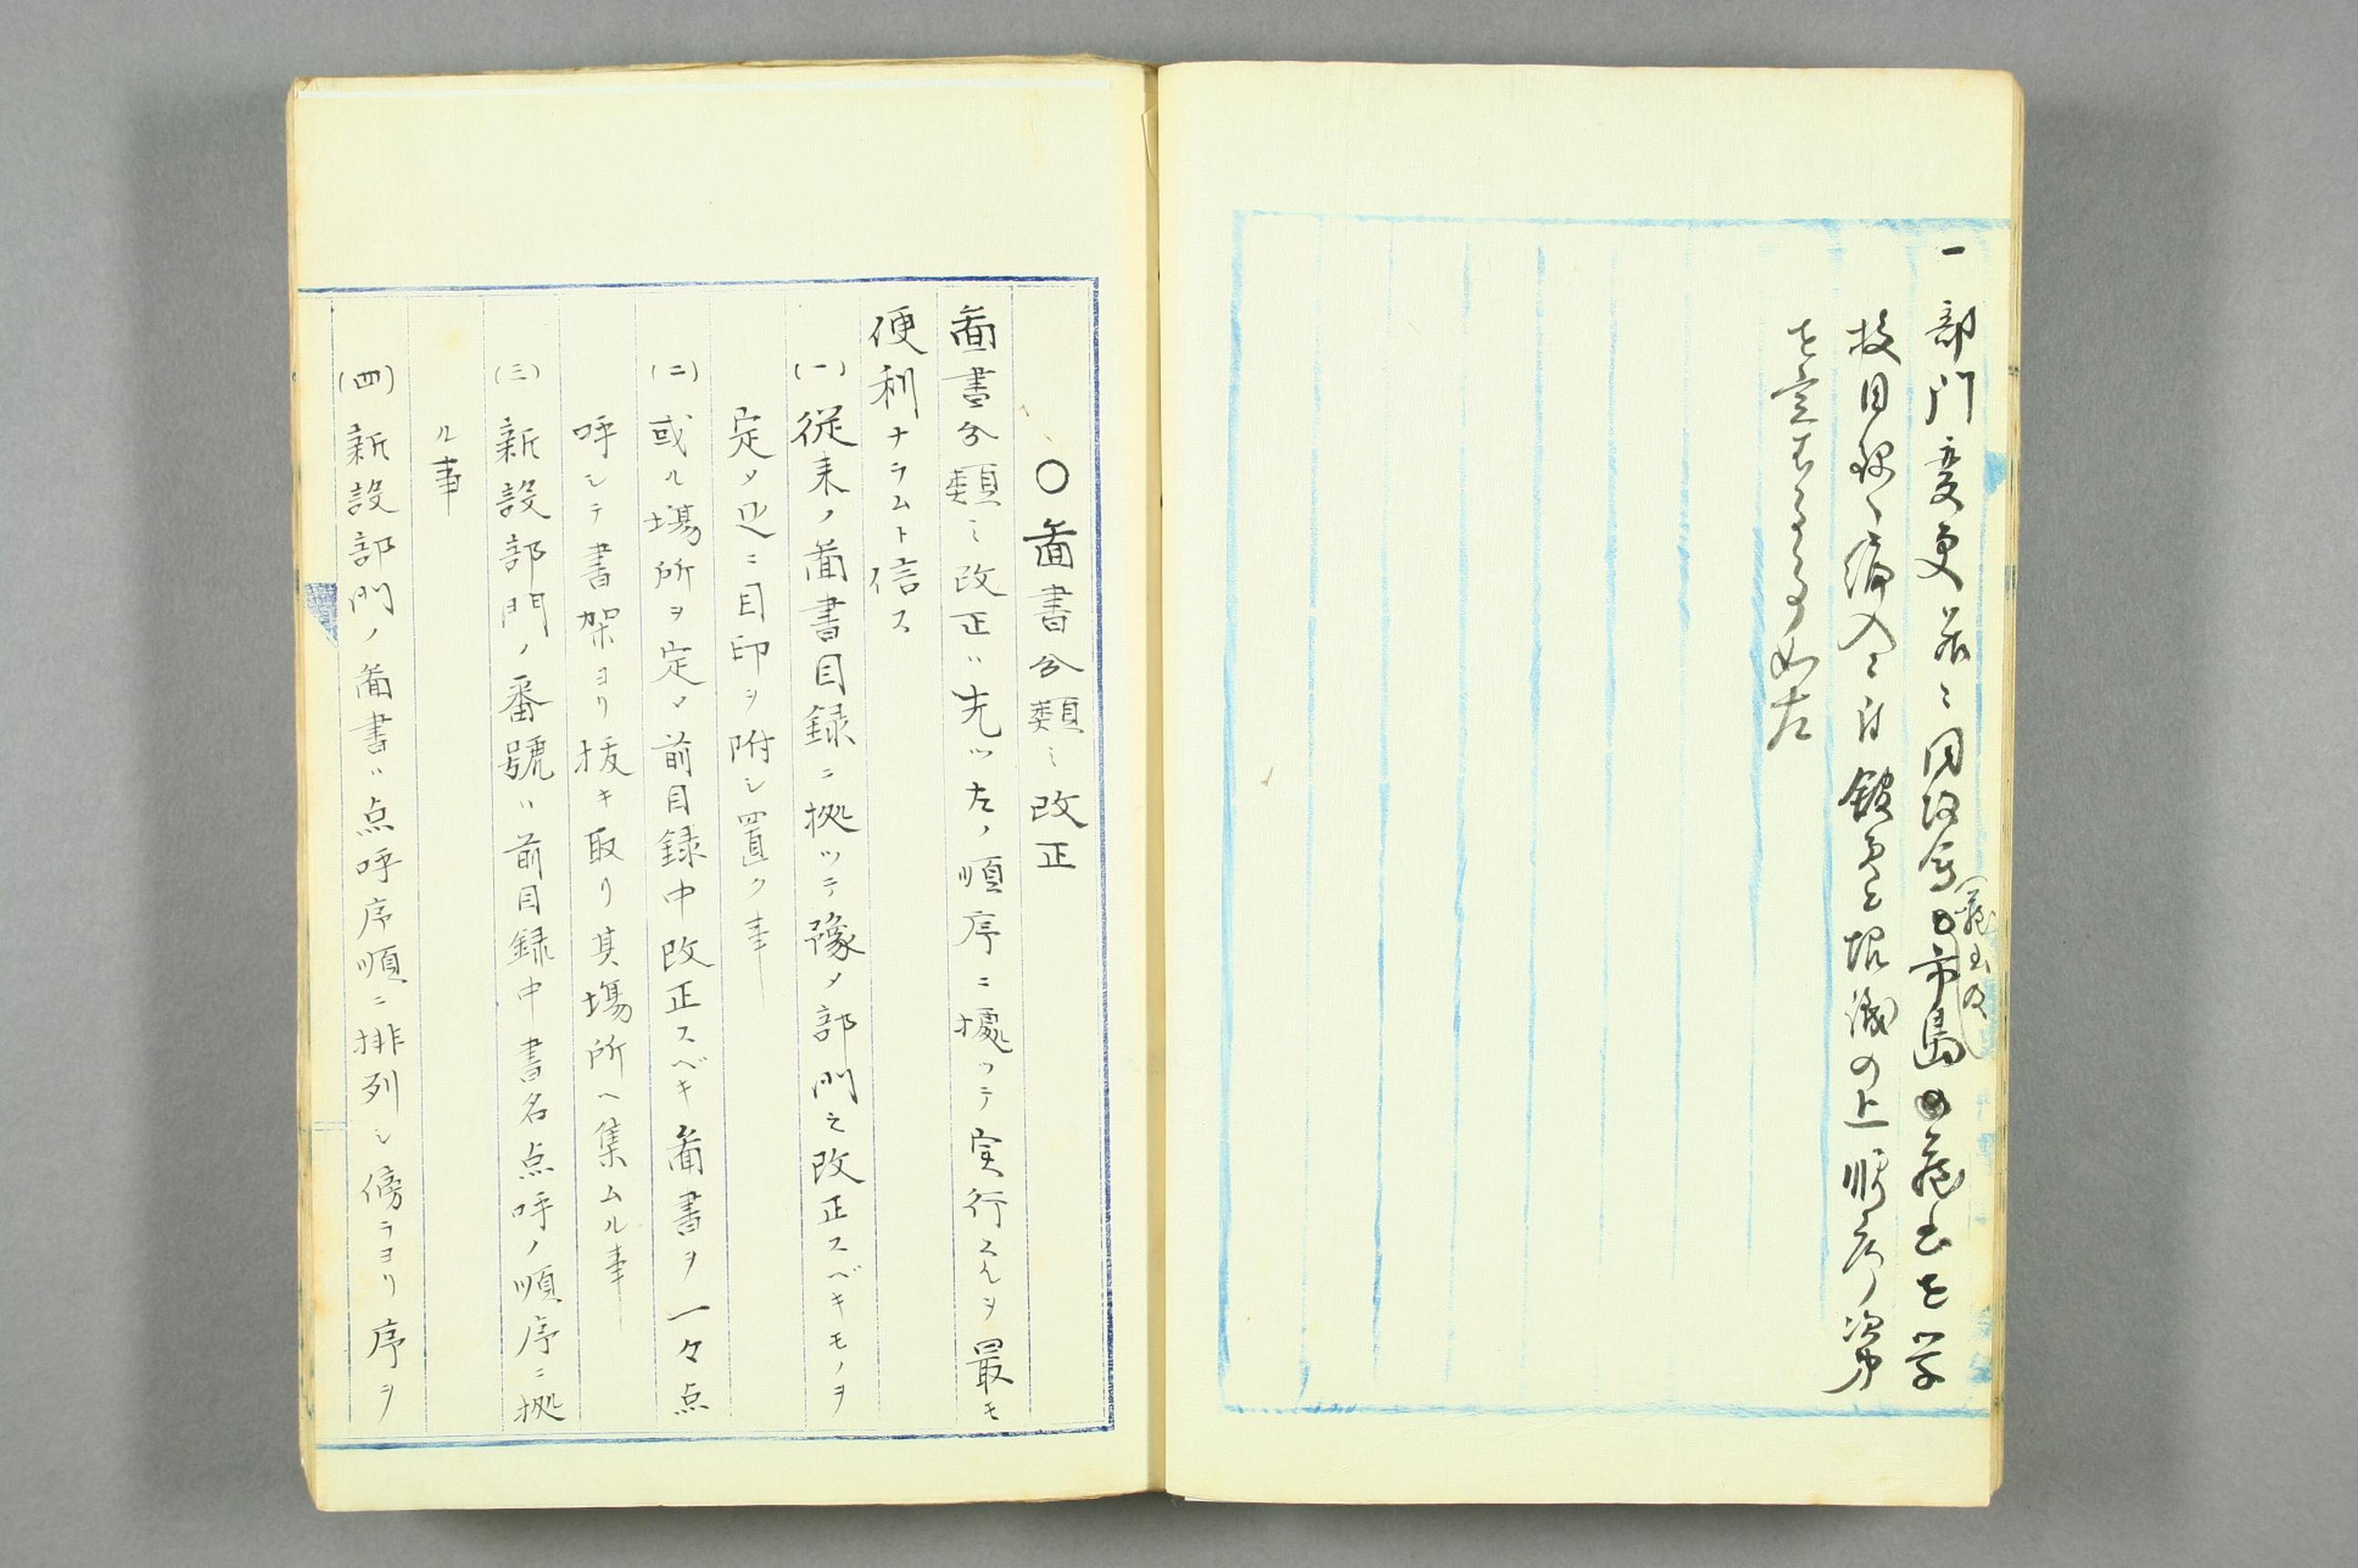 一 部門変更並ニ同改写市島蔵書を学
校目録ヘ編入ニ付館員と協議の上順序次第
を定むる事如左
〇 啚書分類之改正
啚書分類之改正ハ先ツ左ノ順序ニ據ツテ実行スルヲ最モ
便利ナラムト信ス
(一) 従来ノ啚書目録ニ拠ツテ豫メ部門之改正スベキモノヲ
定メ足ニ目印ヲ附シ置ク事
(二) 或ル場所ヲ定メ前目録中改正スベキ啚書ヲ一々点
呼シテ書架ヨリ抜キ取リ其場所ヘ集ムル事
(三) 新設部門ノ番號ハ前目録中書名点呼ノ順序ニ拠
ル事
(四) 新設部門ノ啚書ハ点呼序順ニ排列シ傍ラヨリ序ヲ